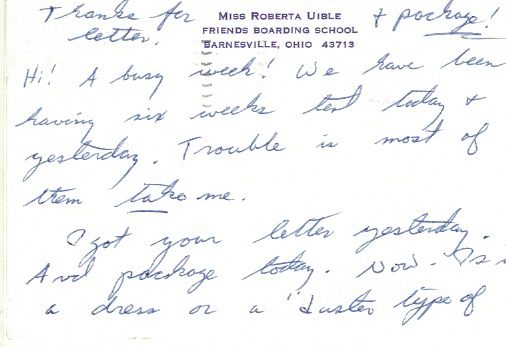 Thanks for
letter.
+ package!
MISS ROBERTA UIBLE
FRIENDS BOARDING SCHOOL
BARNESVILLE, OHIO 43713
Hi! A busy week! We have been
having six weeks test today +
yesterday. Trouble is most of
them take me.
I got your letter yesterday.
And package today. Now - Is
a dress or a "duster type of